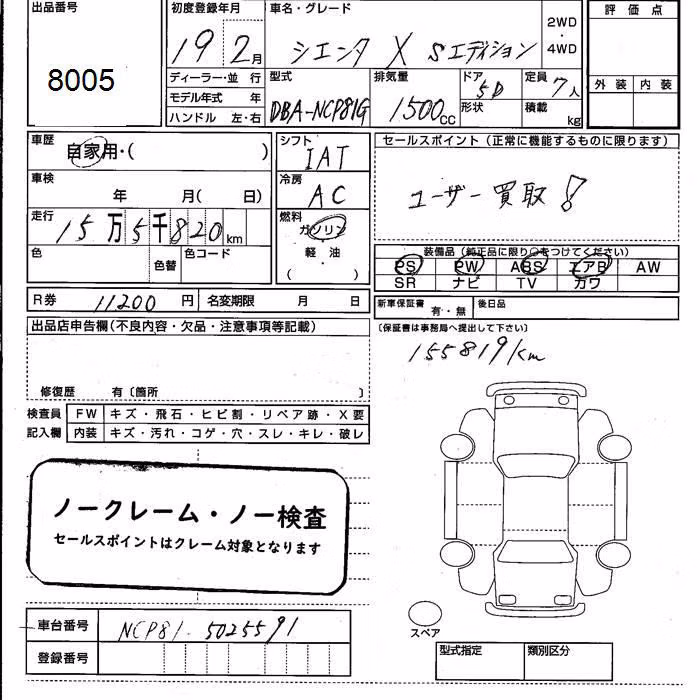 出品番号
8005
初度登録年月
19 2月
車名・グレード
シエンタ X Sエディション
2WD
・
4WD
評価点
外装 内装
ディーラー・並 行
モデル年式 年
ハンドル 左・右
型式
DBA-NCP81G
排気量
1500cc
ドア
5D
形状
定員
7人
積載
kg
車歴
自家用・( )
車検
年 月( 日)
走行
15万5千820km
色
色替
色コード
シフト
IAT
冷房
AC
燃料
ガソリン
軽・油
( )
セールスポイント(正常に機能するものに限ります)
ユーザー買取!
装備品(純正品に限り○をつけてください)
PS PW ABS エアB AW
SR ナビ TV カワ
R券 11200円
名変期限 月 日
新車保証書
有・無
後日品
(保証書は事務局へ提出して下さい)
155819km
出品店申告欄(不良内容・欠品・注意事項等記載)
修復歴 有〔箇所 〕
検査員
記入欄
FW キズ・飛石・ヒビ割・リペア跡・X要
内装 キズ・汚れ・コゲ・穴・スレ・キレ・破レ
ノークレーム・ノー検査
セールスポイントはクレーム対象となります
車台番号 NCP81-5025591
登録番号
スペア
型式指定 類別区分